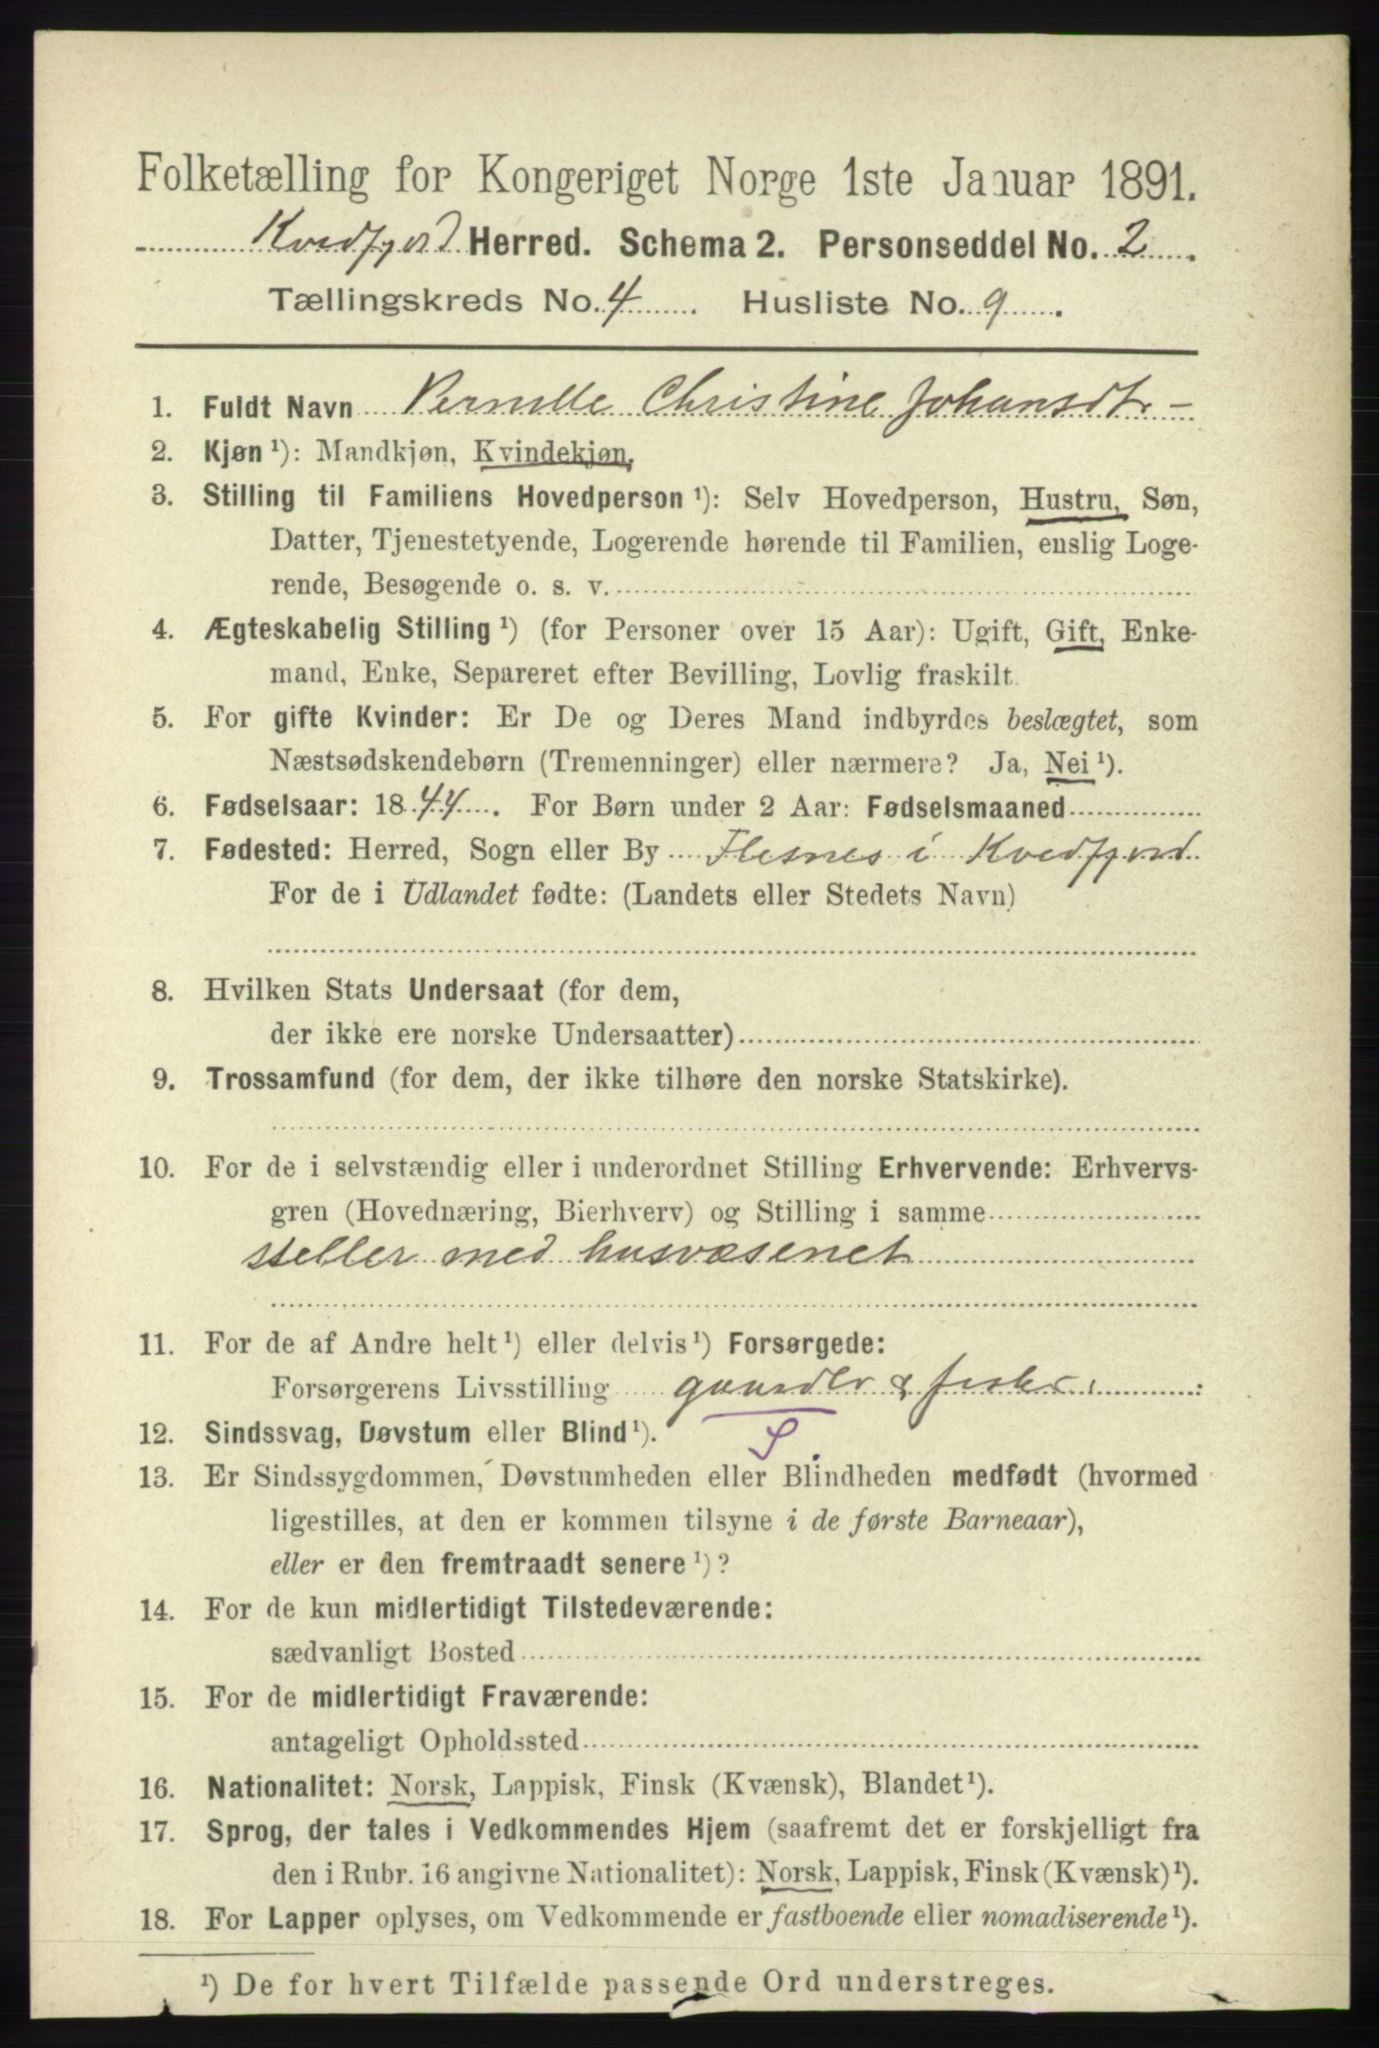 Folketælling for Kongeriget Norge 1ste Januar 1891.
Kvedfjord Herred. Schema 2. Personseddel No. 2.
Tællingskreds No. 4. Husliste No. 9.
1. Fuldt Navn Pernelle Christine Johansdtr
2. Kjøn ¹): Mandkjøn, Kvindekjøn.
3. Stilling til Familiens Hovedperson ¹): Selv Hovedperson, Hustru, Søn,
Datter, Tjenestetyende, Logerende hørende til Familien, enslig Loge-
rende, Besøgende o. s. v.
4. Ægteskabelig Stilling ¹) (for Personer over 15 Aar): Ugift, Gift, Enke-
mand, Enke, Separeret efter Bevilling, Lovlig fraskilt.
5. For gifte Kvinder: Er De og Deres Mand indbyrdes beslægtet, som
Næstsødskendebørn (Tremenninger) eller nærmere? Ja, Nei ¹).
6. Fødselsaar: 1844. For Børn under 2 Aar: Fødselsmaaned
7. Fødested: Herred, Sogn eller By Flesnes i Kvedfjord
For de i Udlandet fødte: (Landets eller Stedets Navn)
8. Hvilken Stats Undersaat (for dem,
der ikke ere norske Undersaatter)
9. Trossamfund (for dem, der ikke tilhøre den norske Statskirke).
10. For de i selvstændig eller i underordnet Stilling Erhvervende: Erhvervs-
gren (Hovednæring, Bierhverv) og Stilling i samme
steller med husvæsenet
11. For de af Andre helt ¹) eller delvis ¹) Forsørgede:
Forsørgerens Livsstilling gaardbr & fisker
12. Sindssvag, Døvstum eller Blind ¹).
S
13. Er Sindssygdommen, Døvstumheden eller Blindheden medfødt (hvormed
ligestilles, at den er kommen tilsyne i de første Barneaar),
eller er den fremtraadt senere ¹)?
14. For de kun midlertidigt Tilstedeværende:
sædvanligt Bosted
15. For de midlertidigt Fraværende:
antageligt Opholdssted
16. Nationalitet: Norsk, Lappisk, Finsk (Kvænsk), Blandet ¹).
17. Sprog, der tales i Vedkommendes Hjem (saafremt det er forskjelligt fra
den i Rubr. 16 angivne Nationalitet): Norsk, Lappisk, Finsk (Kvænsk) ¹).
18. For Lapper oplyses, om Vedkommende er fastboende eller nomadiserende ¹).
¹) De for hvert Tilfælde passende Ord understreges.